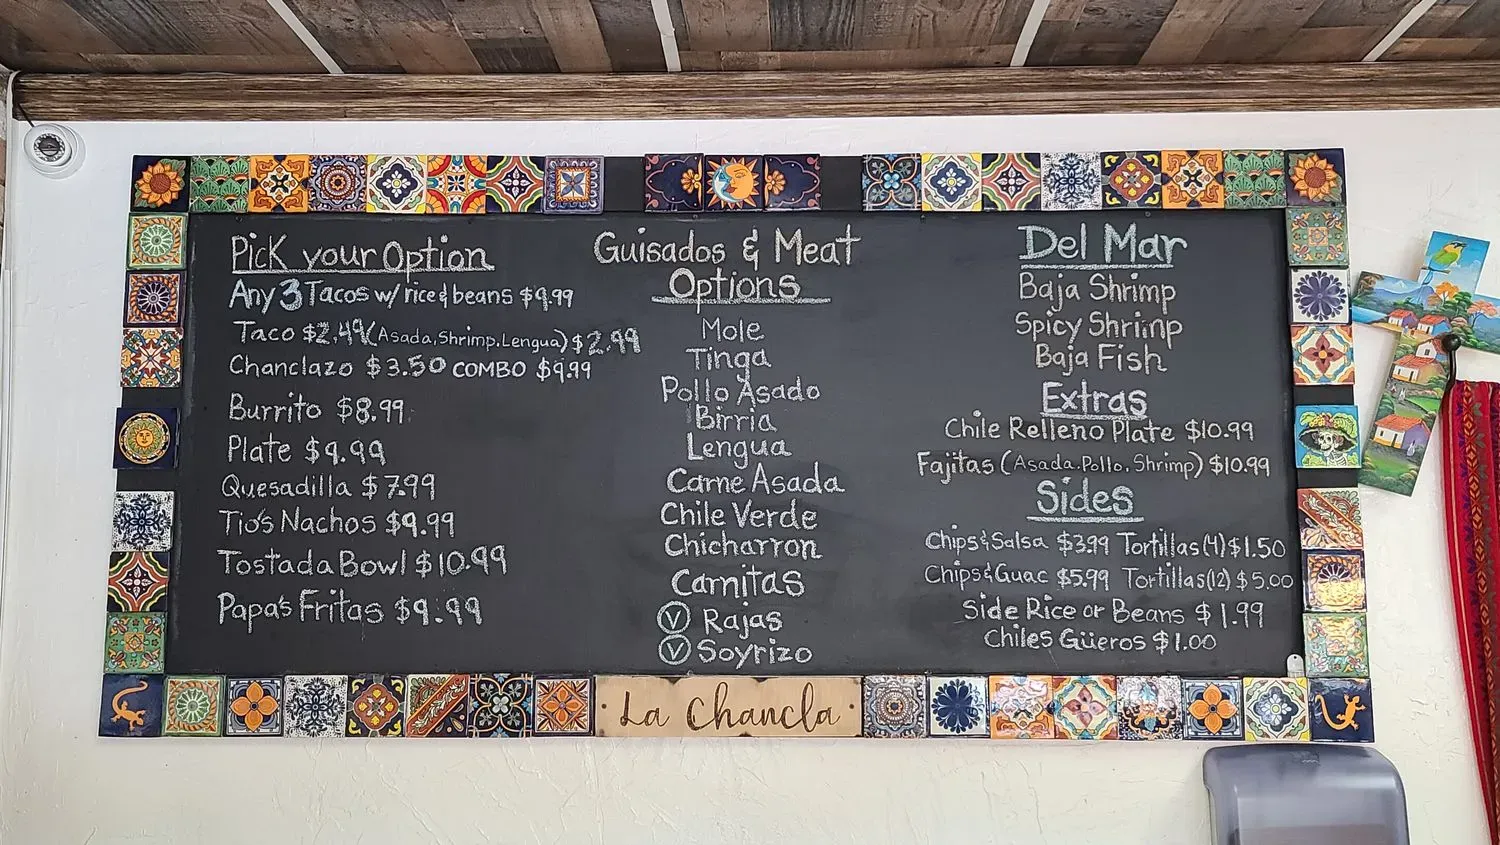 Pick your Option
Any 3 Tacos w/ rice & beans $9.99
Taco $2.49 (Asada, Shrimp, Lengua) $2.99
Chanclazo $3.50 COMBO $9.99
Burrito $8.99
Plate $9.99
Quesadilla $7.99
Tio's Nachos $9.99
Tostada Bowl $10.99
Papa's Fritas $9.99
Guisados & Meat
Options
Mole
Tinga
Pollo Asado
Birria
Lengua
Carne Asada
Chile Verde
Chicharron
Carnitas
V Rajas
V Soyrizo
Del Mar
Baja Shrimp
Spicy Shrimp
Baja Fish
Extras
Chile Relleno Plate $10.99
Fajitas (Asada, Pollo, Shrimp) $10.99
Sides
Chips & Salsa $3.99 Tortillas (4) $1.50
Chips & Guac $5.99 Tortillas (12) $5.00
Side Rice or Beans $1.99
Chiles Güeros $1.00
La Chancla